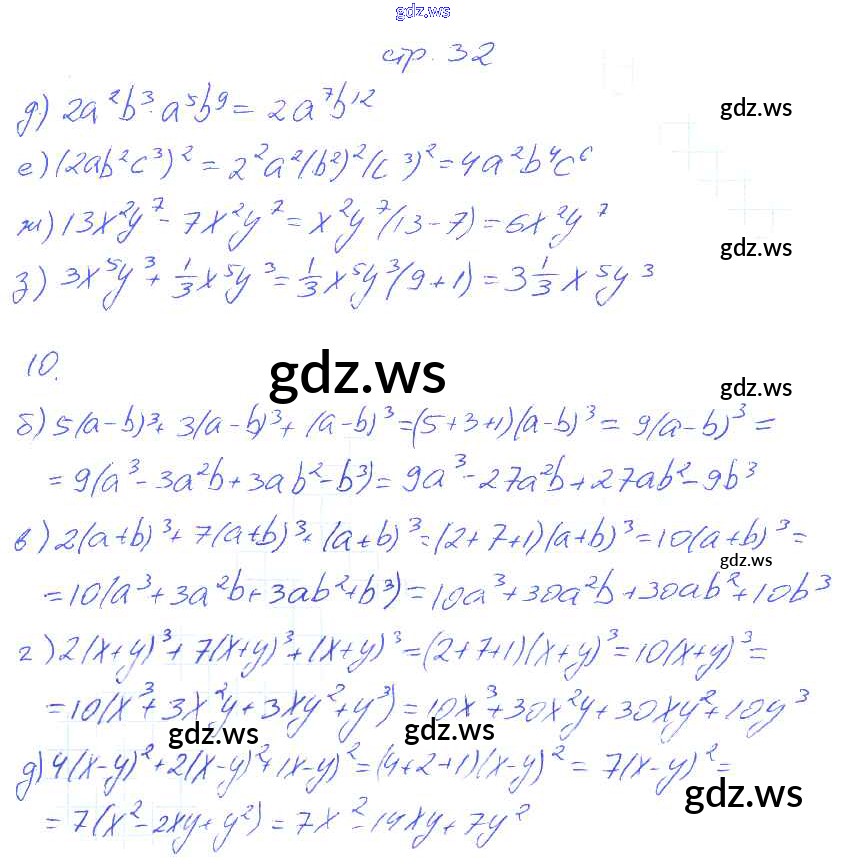 gdz.ws
стр. 32
д) 2a²b³·a⁵b⁹ = 2a⁷b¹² gdz.ws
е) (2ab²c³)² = 2²a²(b²)²(c³)² = 4a²b⁴c⁶
ж) 13x²y⁷ - 7x²y⁷ = x²y⁷(13-7) = 6x²y⁷ gdz.ws
з) 3x⁵y³ + 1/3x⁵y³ = 1/3x⁵y³(9+1) = 3 1/3x⁵y³
10. gdz.ws gdz.ws
б) 5(a-b)³ + 3(a-b)³ + (a-b)³ = (5+3+1)(a-b)³ = 9(a-b)³ =
= 9(a³ - 3a²b + 3ab² - b³) = 9a³ - 27a²b + 27ab² - 9b³
в) 2(a+b)³ + 7(a+b)³ + (a+b)³ = (2+7+1)(a+b)³ = 10(a+b)³ =
gdz.ws
= 10(a³ + 3a²b + 3ab² + b³) = 10a³ + 30a²b + 30ab² + 10b³
г) 2(x+y)³ + 7(x+y)³ + (x+y)³ = (2+7+1)(x+y)³ = 10(x+y)³ =
= 10(x³ + 3x²y + 3xy² + y³) = 10x³ + 30x²y + 30xy² + 10y³
gdz.ws gdz.ws
д) 4(x-y)² + 2(x-y)² + (x-y)² = (4+2+1)(x-y)² = 7(x-y)² =
gdz.ws
= 7(x² - 2xy + y²) = 7x² - 14xy + 7y²